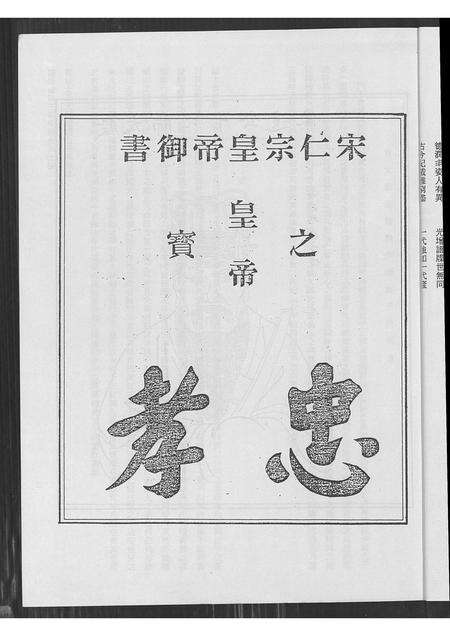 宋仁宗皇帝御書
皇帝
之
寶
忠孝